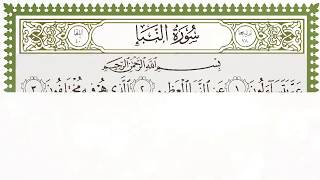 ترتيبها ٧٨ سُورَةُ النَّبَإِ آياتها ٤٠
بِسْمِ اللَّهِ الرَّحْمَٰنِ الرَّحِيمِ
عَمَّ يَتَسَاءَلُونَ ١ عَنِ النَّبَإِ الْعَظِيمِ ٢ الَّذِي هُمْ فِيهِ مُخْتَلِفُونَ ٣